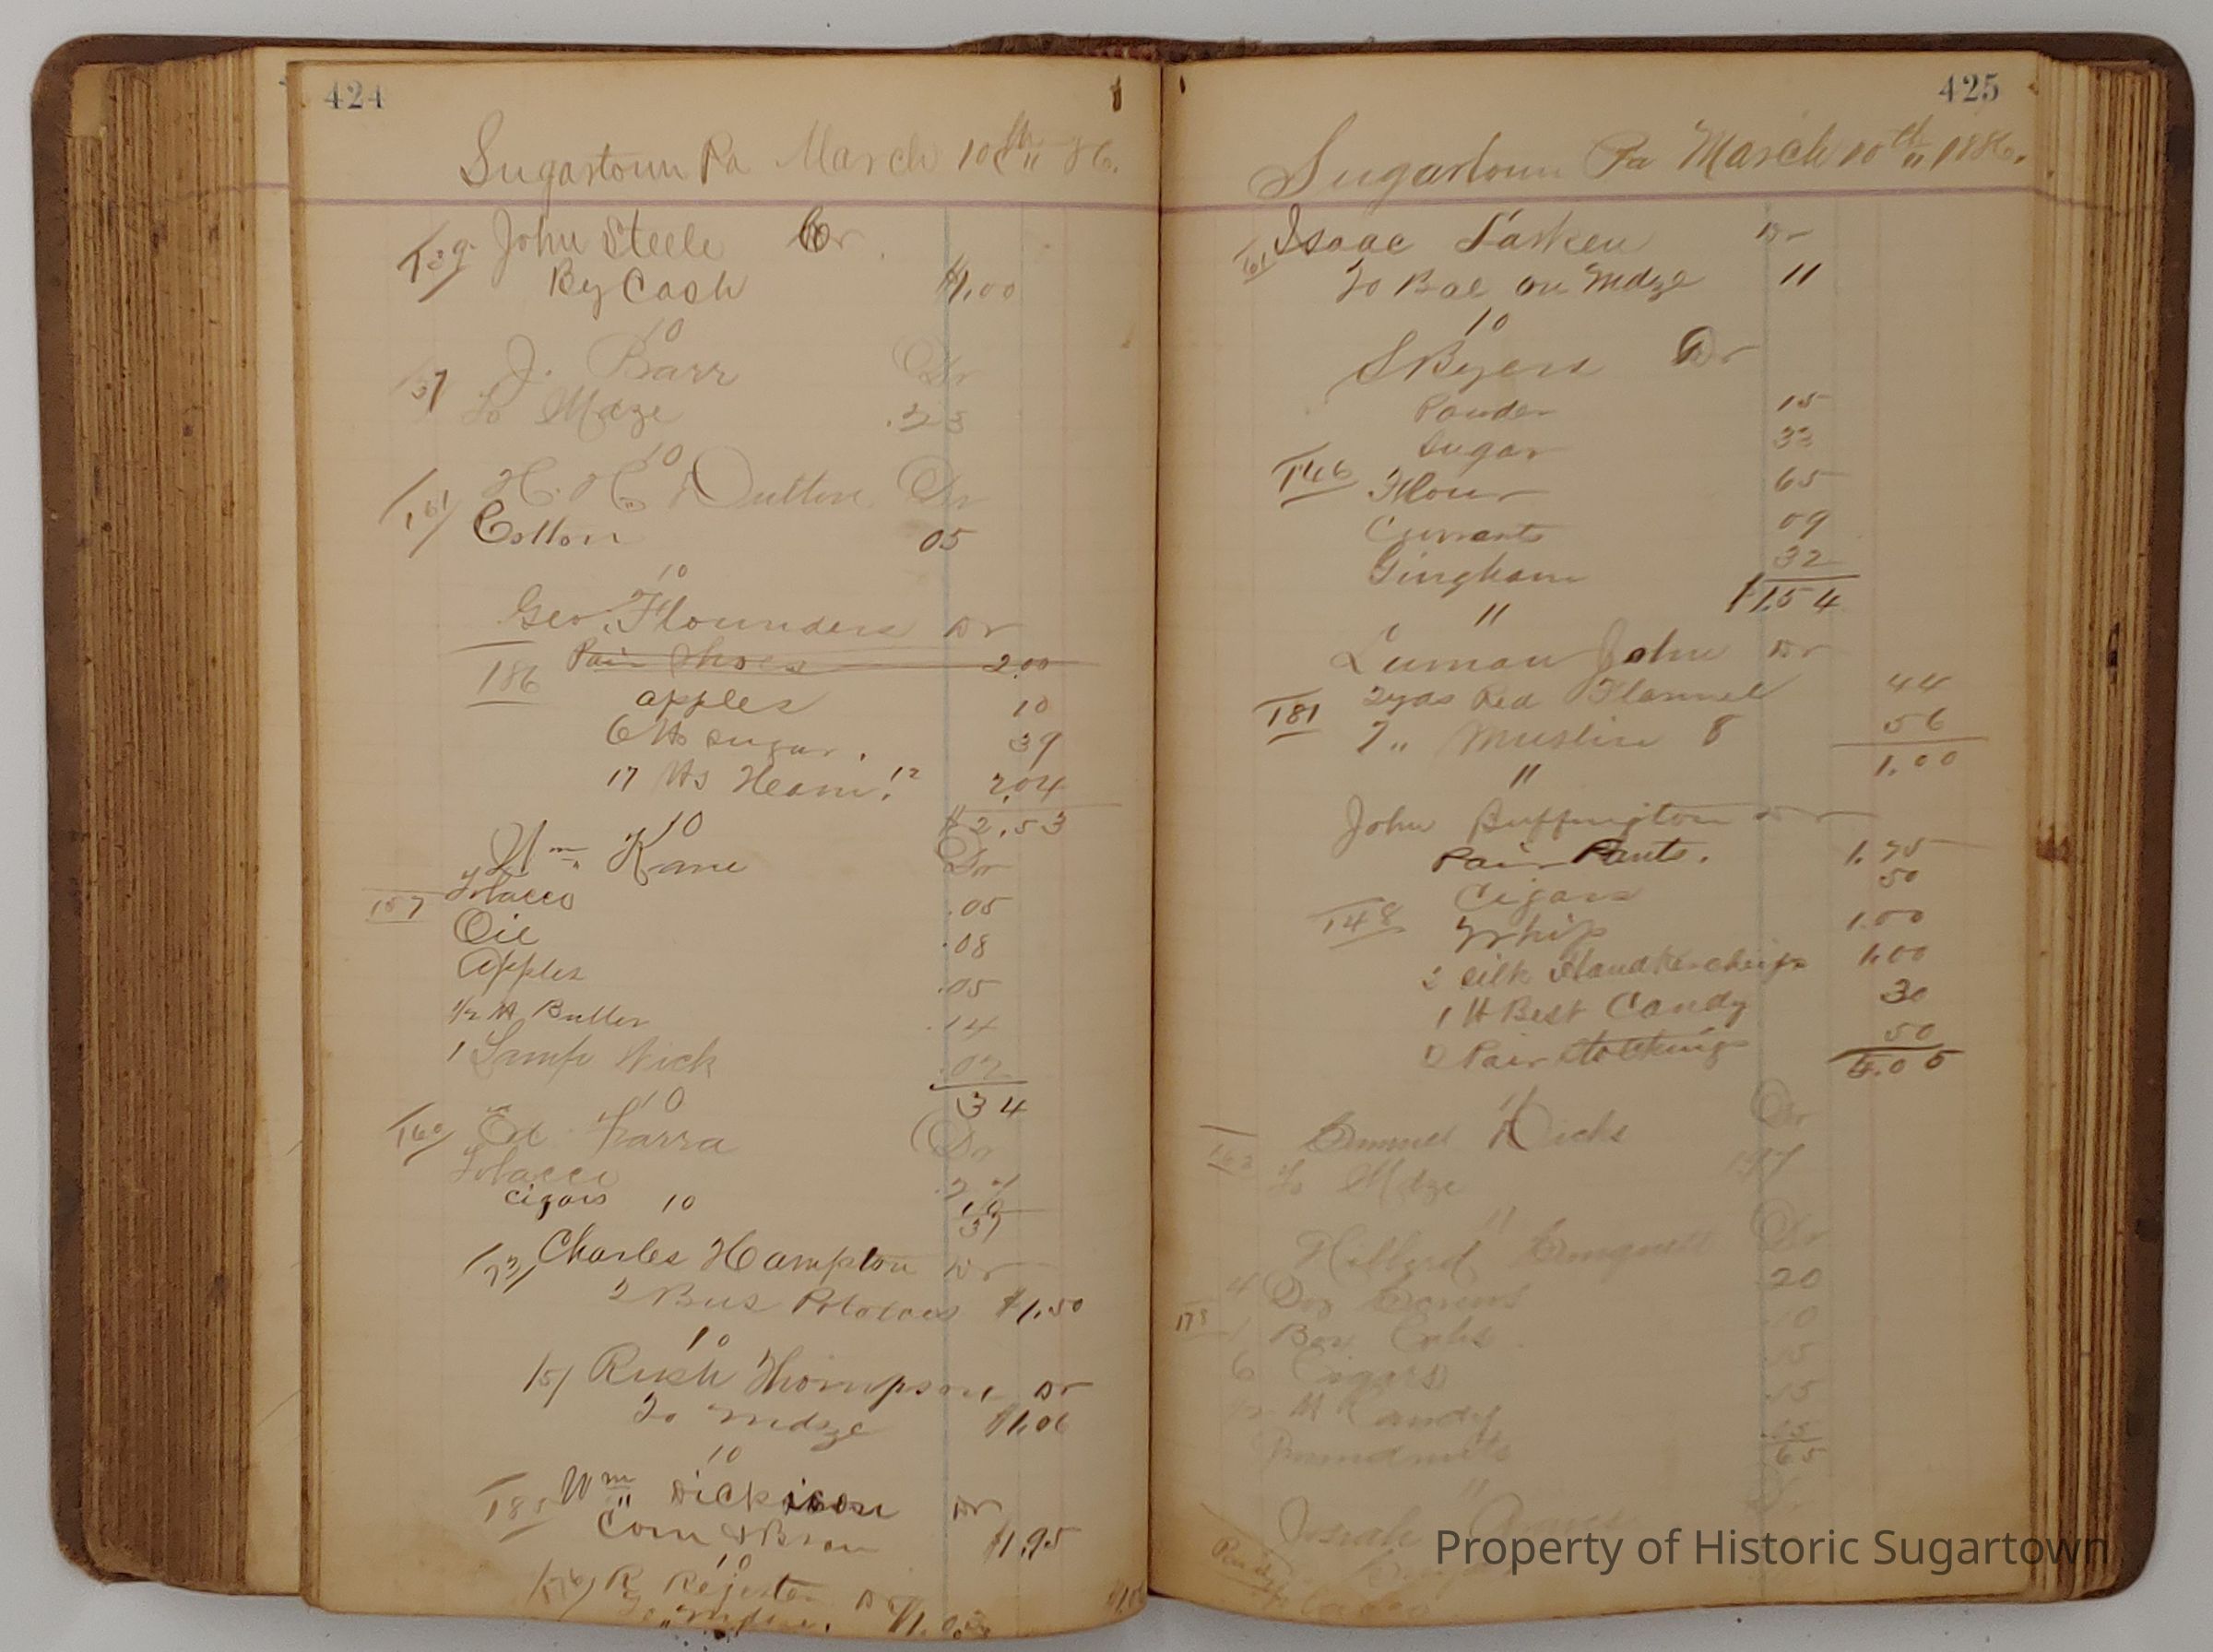 424
Sugartown Pa March 10th " 86.
139 John Steele Cr
By Cash $1.00
10
137 J. Barr Dr
To Mdze .23
10
161 H. H. Dutton Dr
Cotton 05
10
Geo. Flounders Dr
186 Pair Shoes 2.00
apples 10
6 lbs sugar. 39
17 lbs Ham. 12 2.04
$2.53
10
Wm Kane Dr
157 Tobacco .05
Oil .08
Apples .05
1/2 lb Butter .14
1 Lamp Wick .02
34
10
160 Ed. Farra Dr
Tobacco .27
cigars 10 10
37
Charles Hampton Dr
2 Bus Potatoes $1.50
10
151 Rush Thompson Dr
To mdze $1.06
10
185 Wm " Dickison Dr
Corn & Bran $1.95
10
R Dr
$1.
425
Sugartown Pa March 10th " 1886.
161 Isaac Dr
To Bal on Mdze 11
10
S Byers Dr
Powder 15
Sugar 33
146 Flour 65
Currants 09
Gingham 32
$1.54
"
Luman John Dr
2 yds Red Flannel 44
181 7 " Muslin 8 56
1.00
"
John Buffington Dr
Pair Pants. 1.75
Cigars 50
148 Whip 1.00
2 Silk Handkerchiefs 1.00
1 lb Best Candy 30
2 Pair Stockings 50
5.05
11
Emmel Dicks Dr
162 To Mdze
11
Hibberd Dr
4 Doz 20
173 1 Box 10
6 Cigars 15
lb Candy .15
65
"
Josiah
Property of Historic Sugartown